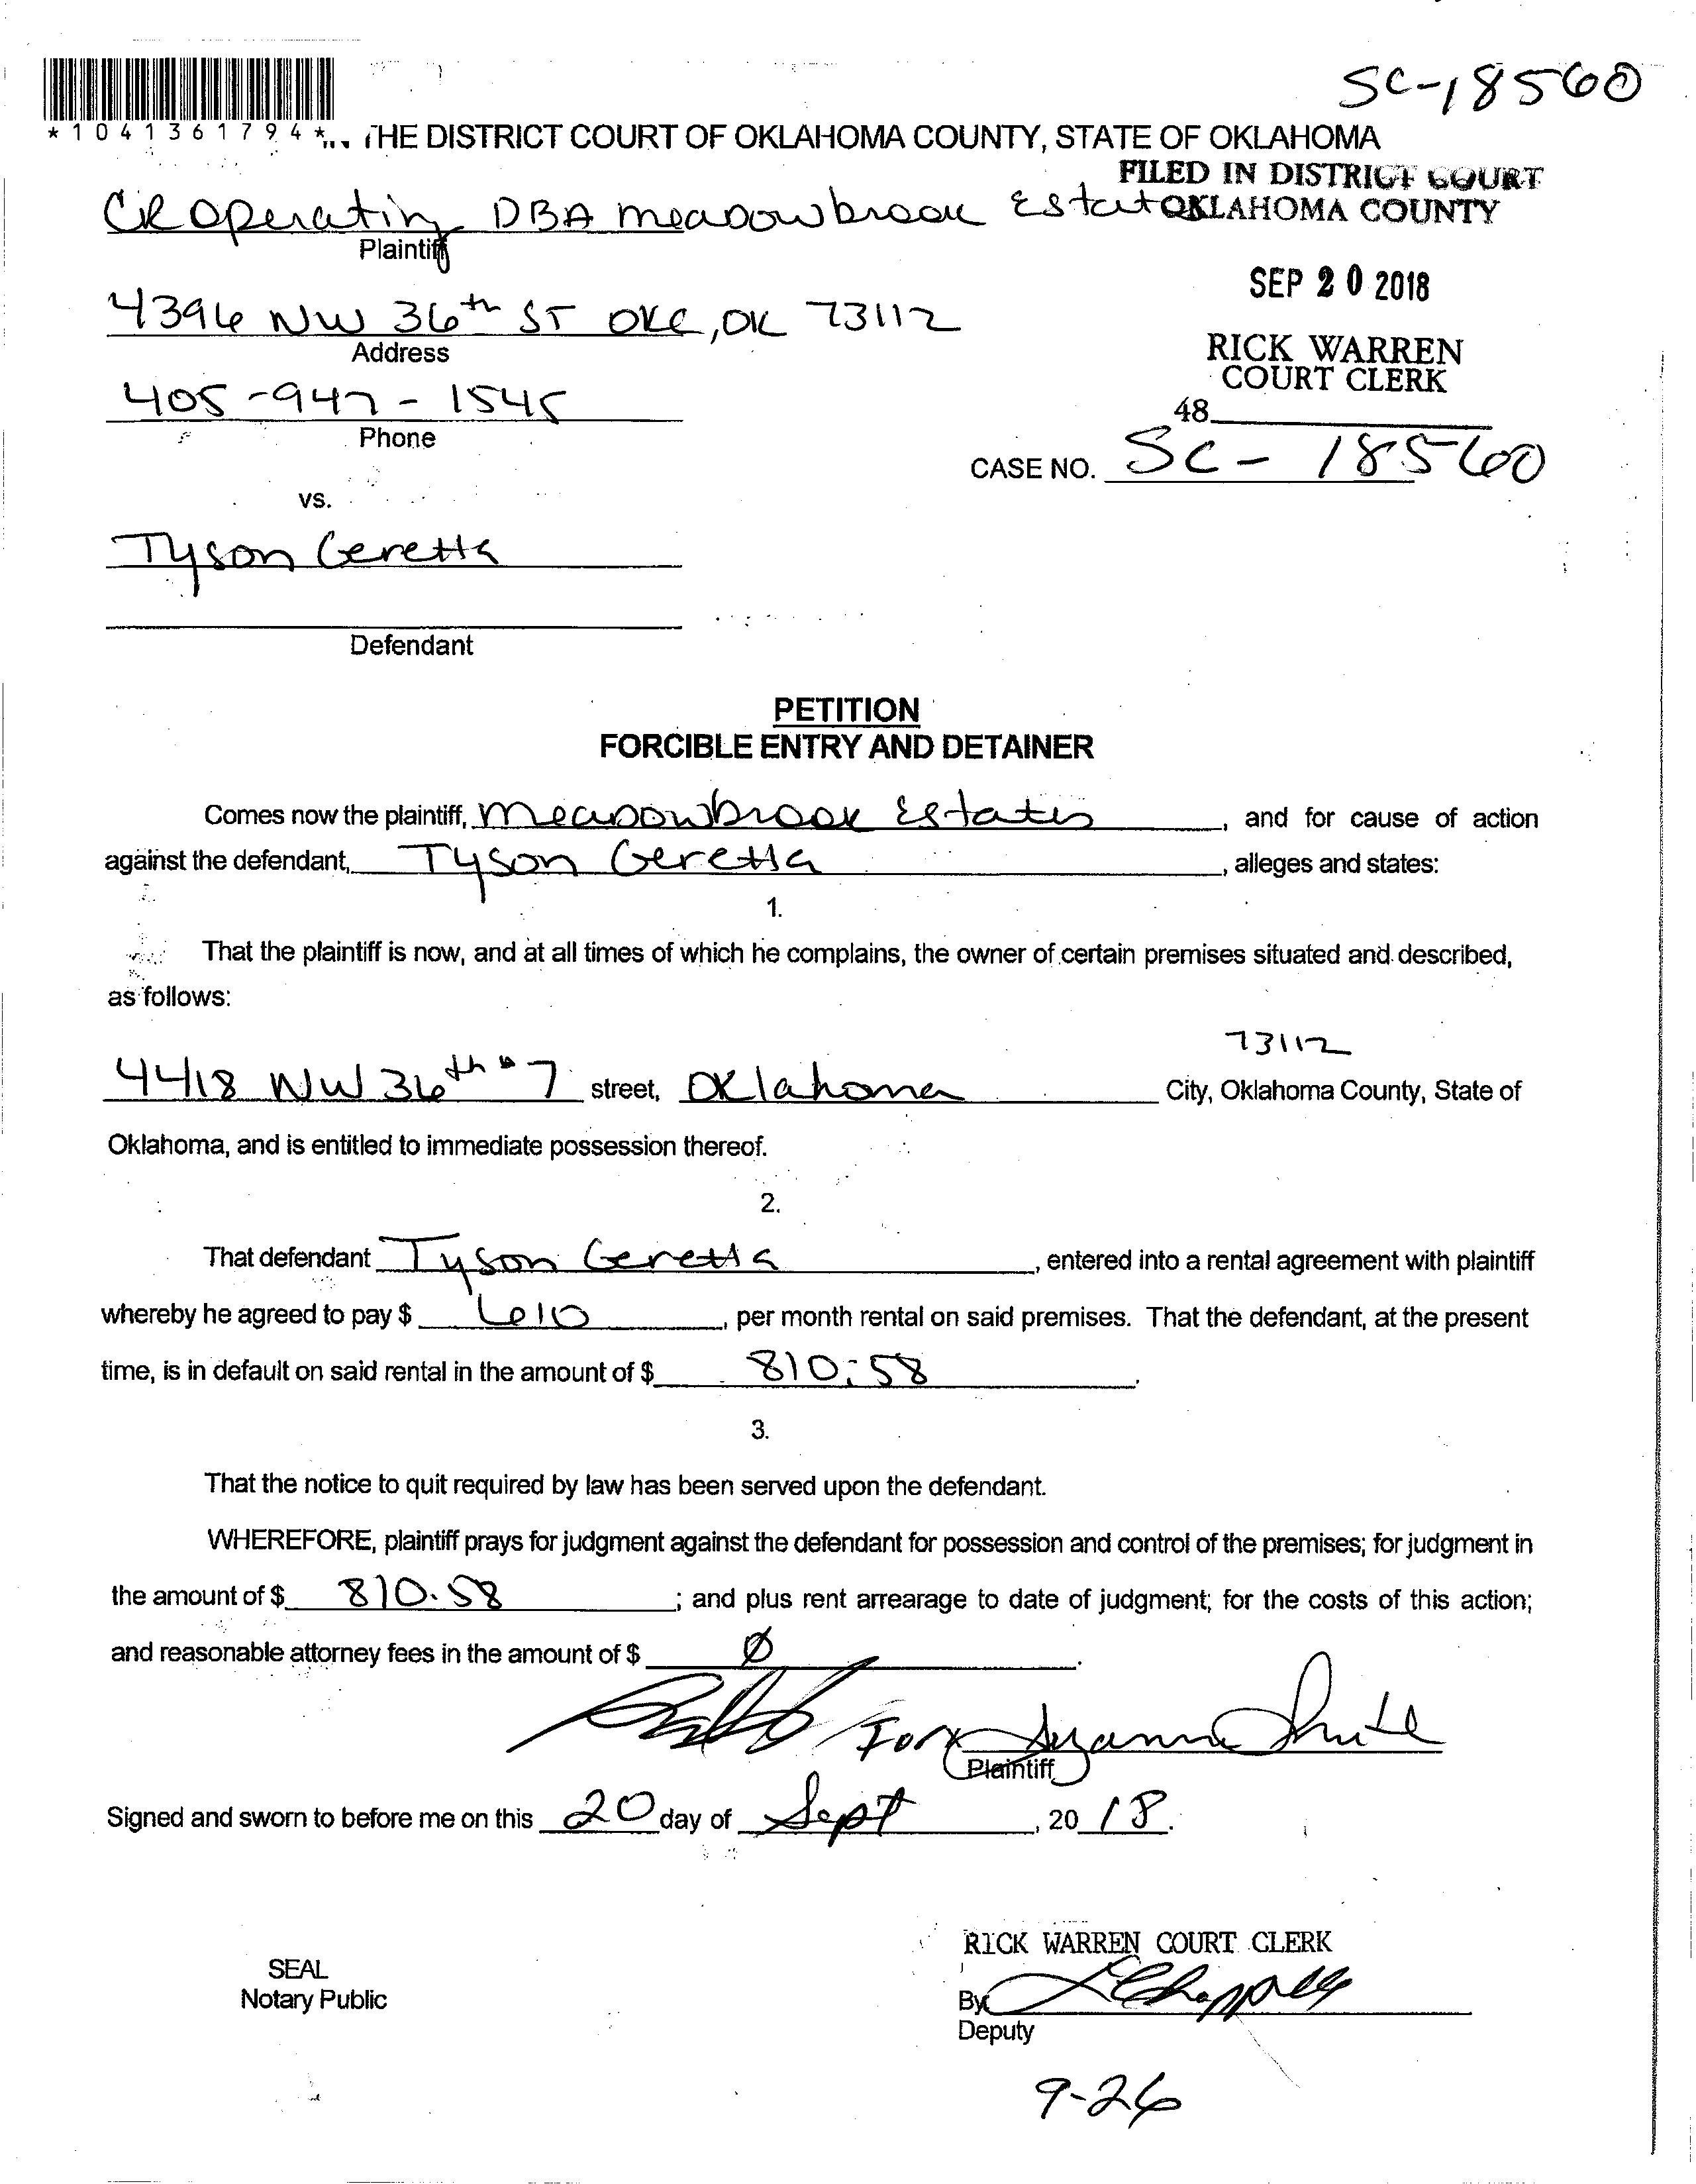 SC-18560
*1041361794*
THE DISTRICT COURT OF OKLAHOMA COUNTY, STATE OF OKLAHOMA
FILED IN DISTRICT COURT
OKLAHOMA COUNTY
CR Operating DBA Meadowbrook Estates
Plaintiff
SEP 20 2018
4396 NW 36th ST OKC, OK 73112
Address
RICK WARREN
COURT CLERK
405-947-1545
Phone
48
CASE NO. SC-18560
vs.
Tyson Geretta
Defendant
PETITION
FORCIBLE ENTRY AND DETAINER
Comes now the plaintiff, Meadowbrook Estates, and for cause of action
against the defendant, Tyson Geretta, alleges and states:
1.
That the plaintiff is now, and at all times of which he complains, the owner of certain premises situated and described,
as follows:
73112
4418 NW 36th #7 street, Oklahoma City, Oklahoma County, State of
Oklahoma, and is entitled to immediate possession thereof.
2.
That defendant Tyson Geretta, entered into a rental agreement with plaintiff
whereby he agreed to pay $ 610, per month rental on said premises. That the defendant, at the present
time, is in default on said rental in the amount of $ 810.58.
3.
That the notice to quit required by law has been served upon the defendant.
WHEREFORE, plaintiff prays for judgment against the defendant for possession and control of the premises; for judgment in
the amount of $ 810.58; and plus rent arrearage to date of judgment; for the costs of this action;
and reasonable attorney fees in the amount of $ Ø.
For
Plaintiff
Signed and sworn to before me on this 20 day of Sept, 2018.
RICK WARREN COURT CLERK
SEAL
Notary Public
By
Deputy
9-26